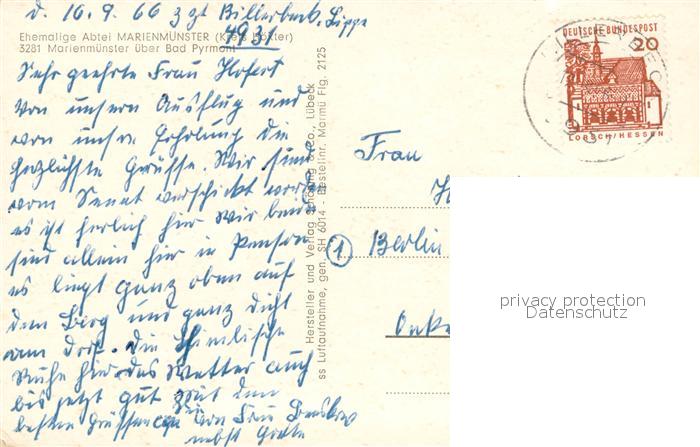 d. 16.9.66 z zt Billerbeck, Lippe
4931
Ehemalige Abtei MARIENMÜNSTER (Kreis Höxter)
3281 Marienmünster über Bad Pyrmont
Sehr geehrte Frau Hofert
Von unsern Ausflug und
von unsre Erhohlung die
herzlichste Grüsse. Wir sind
vom Senat verschickt worden
es ist herlich hier wir beide
sind allein hier in Pension
es liegt ganz oben auf
dem Berg und ganz dicht
am Dorf. Die Himlische
Ruhe hier das Wetter auch
bis jetzt gut Mit den
besten Grüssen von Frau
nebst
Hersteller und Verlag Schöning & Co., Lübeck
ss Luftaufnahme, gen. SH 6014 - Bestellnr. Marmü Flg. 2125
DEUTSCHE BUNDESPOST
20
LORSCH/HESSEN
Frau
H
1 Berlin
Onke
privacy protection
Datenschutz